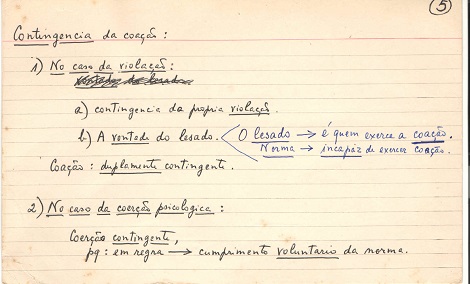 5
Contingencia da coação:
1) No caso da violação:
a) contingencia da propria violação.
b) A vontade do lesado. O lesado → é quem exerce a coação.
Norma → incapaz de exercer coação.
Coação: duplamente contingente.
2) No caso da coerção psicologica:
Coerção contingente,
pq: em regra → cumprimento voluntario da norma.